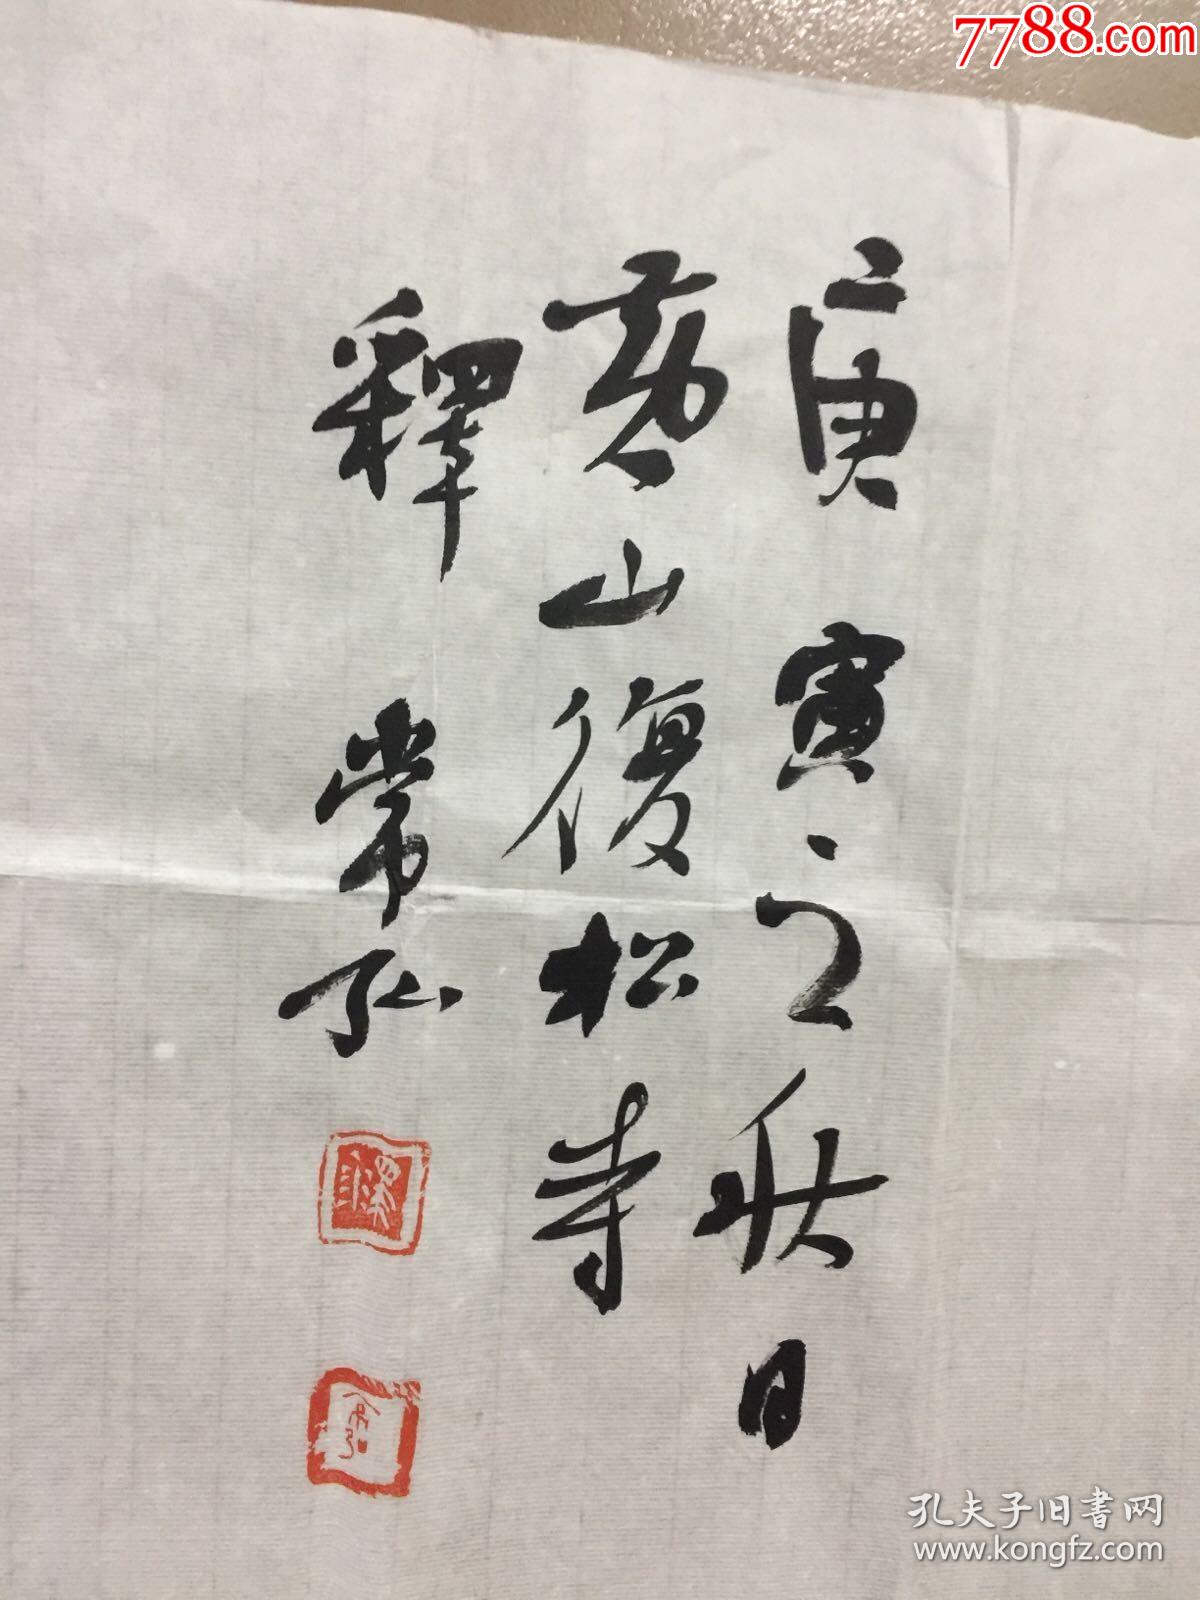 7788.com
庚寅之秋日
黄山復松寺
釋常弘
孔夫子旧书网
www.kongfz.com